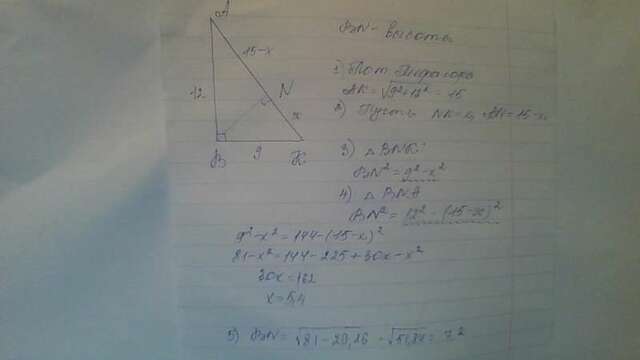 A
15-x
12
N
x
B
9
K
BN - высота
1) По т. Пифагора
AK = √9²+12² = 15
2) Пусть NK = x, AN = 15-x
3) △BNK:
BN² = 9²-x²
4) △BNA
BN² = 12² - (15-x)²
9²-x² = 144-(15-x)²
81-x² = 144-225+30x-x²
30x = 162
x = 5,4
5) BN = √81-29,16 = √51,84 = 7,2